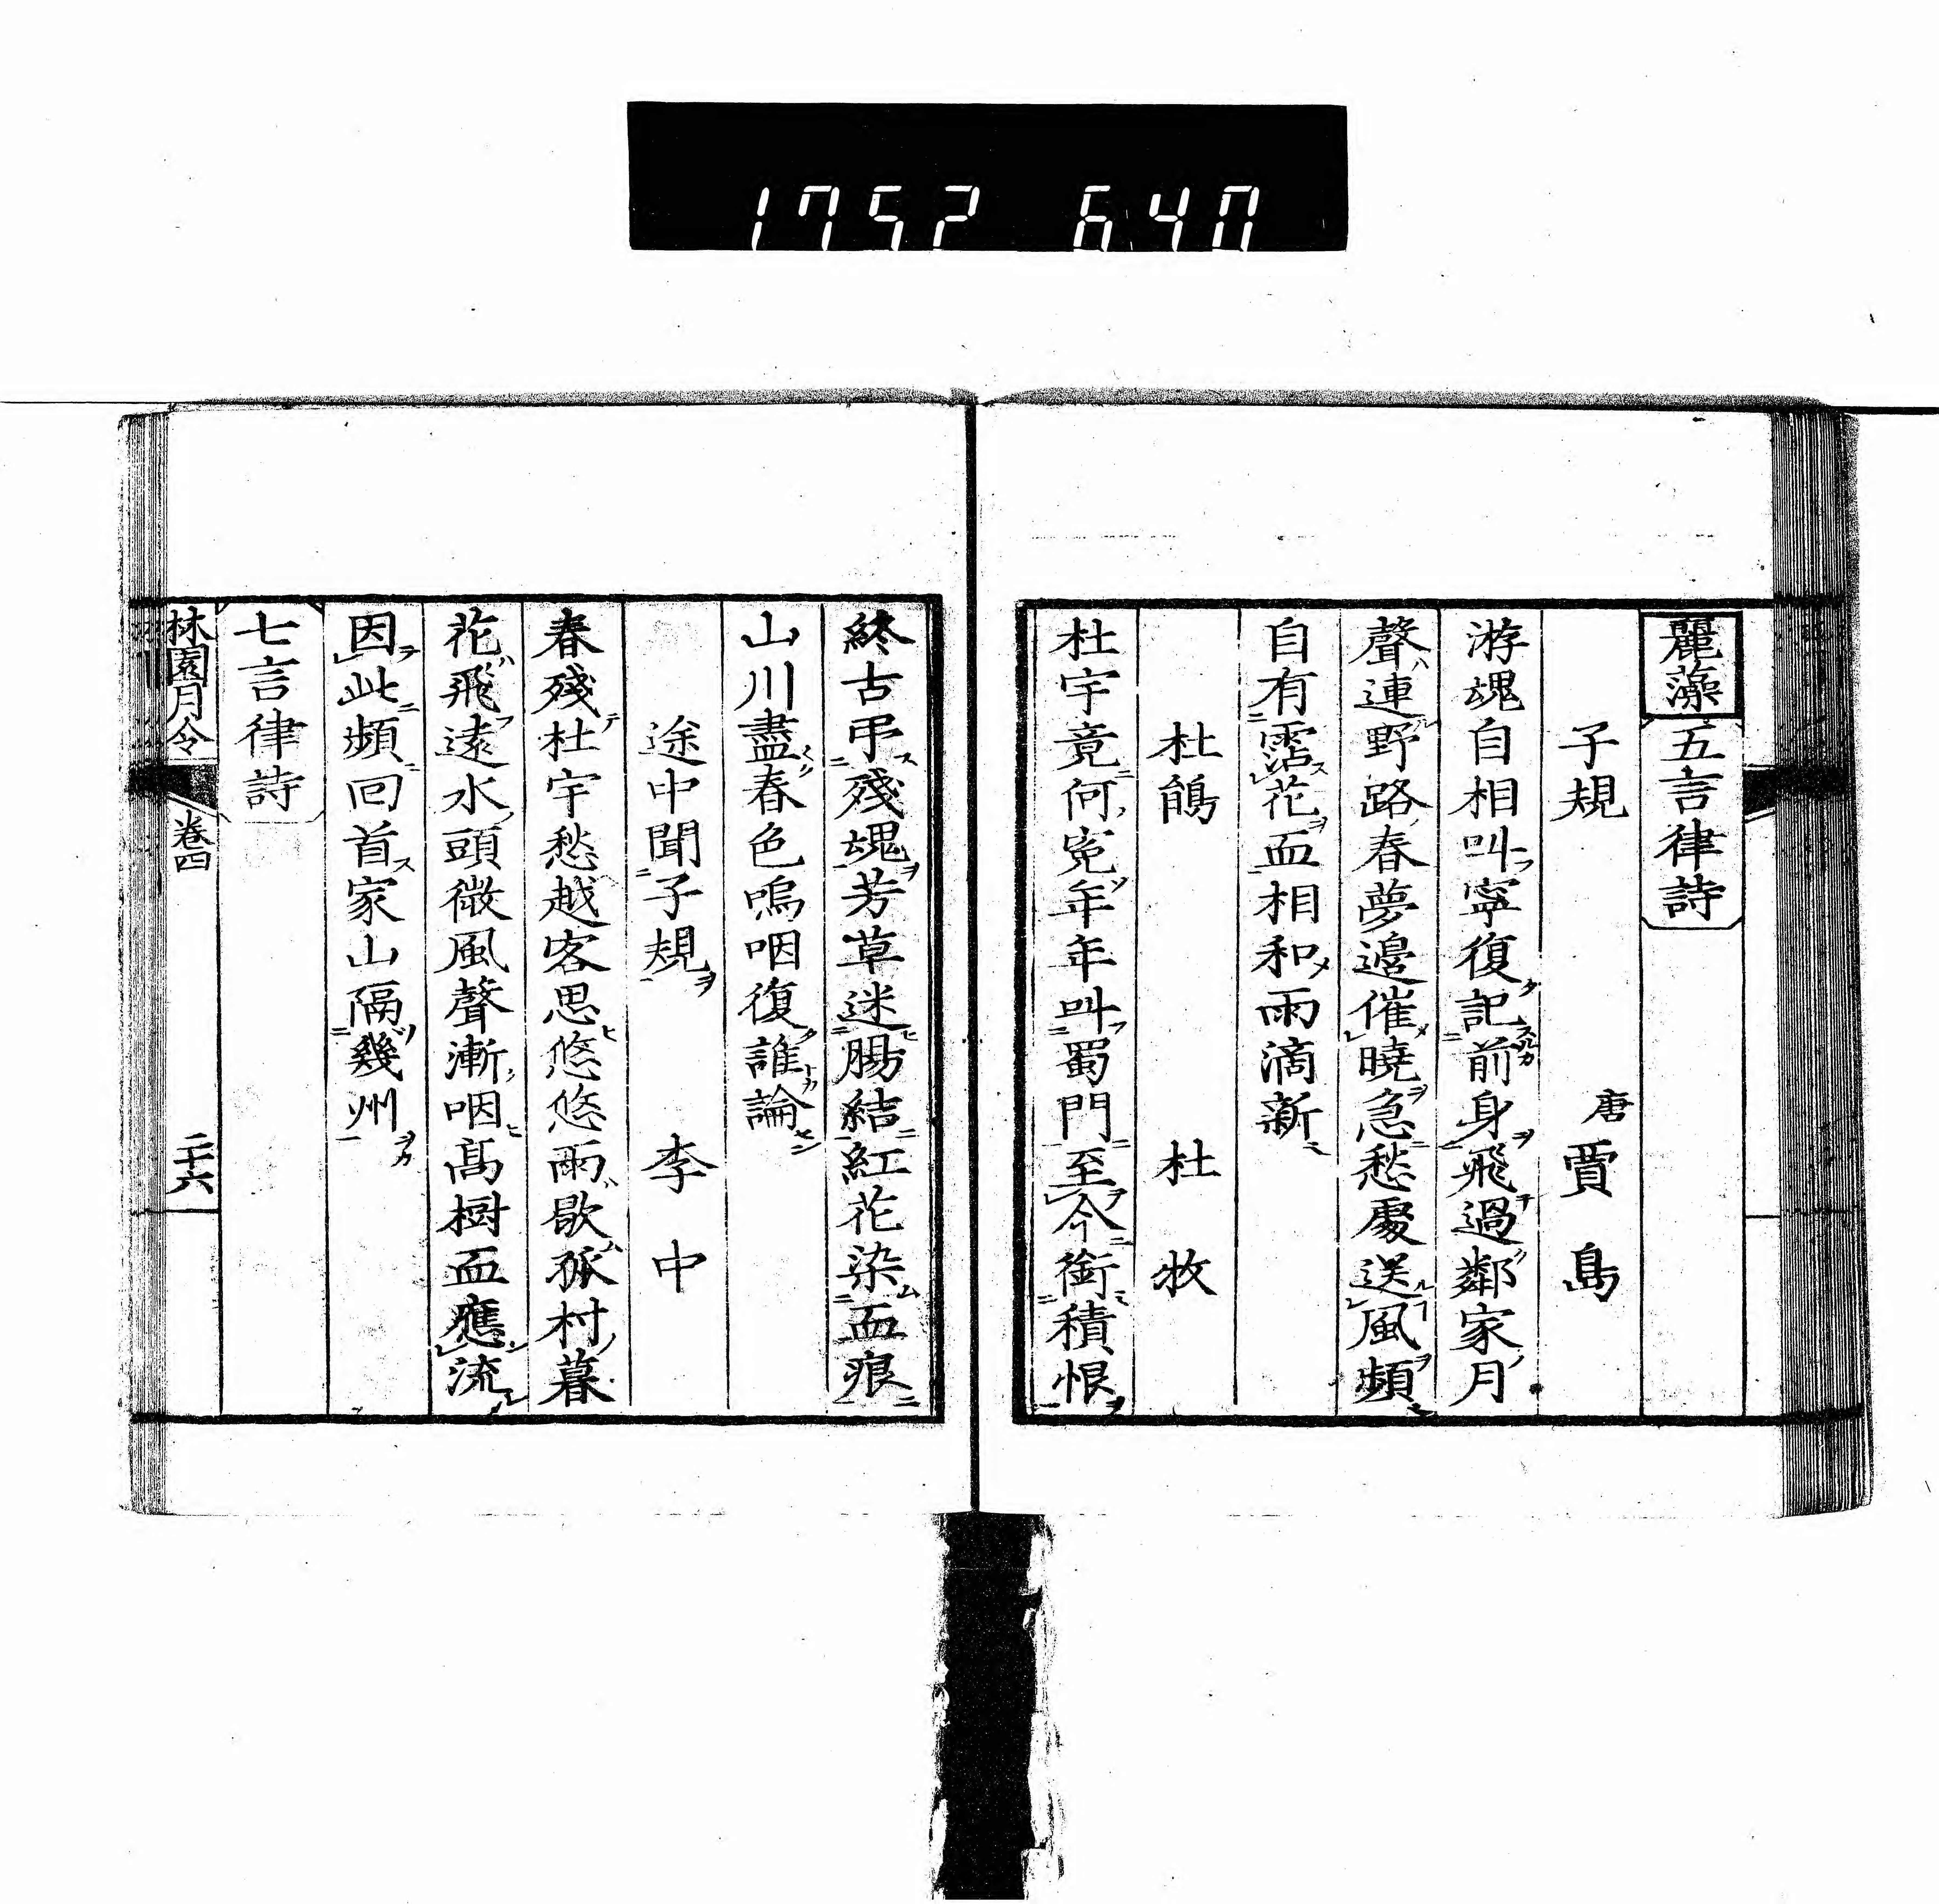 1752 640
麗藻 五言律詩
子規 唐 賈島
游魂自相叫寧復記前身飛過鄰家月
聲連野路春夢邊催曉急愁處送風頻
自有霑花血相和雨滴新
杜鵑 杜牧
杜宇竟何冤年年叫蜀門至今銜積恨
終古弔殘魂芳草迷腸結紅花染血痕
山川盡春色嗚咽復誰論
途中聞子規 李中
春殘杜宇愁越客思悠悠雨歇孤村暮
花飛遠水頭微風聲漸咽高樹血應流
因此頻回首家山隔幾州
七言律詩
林園月令 卷四 二十六